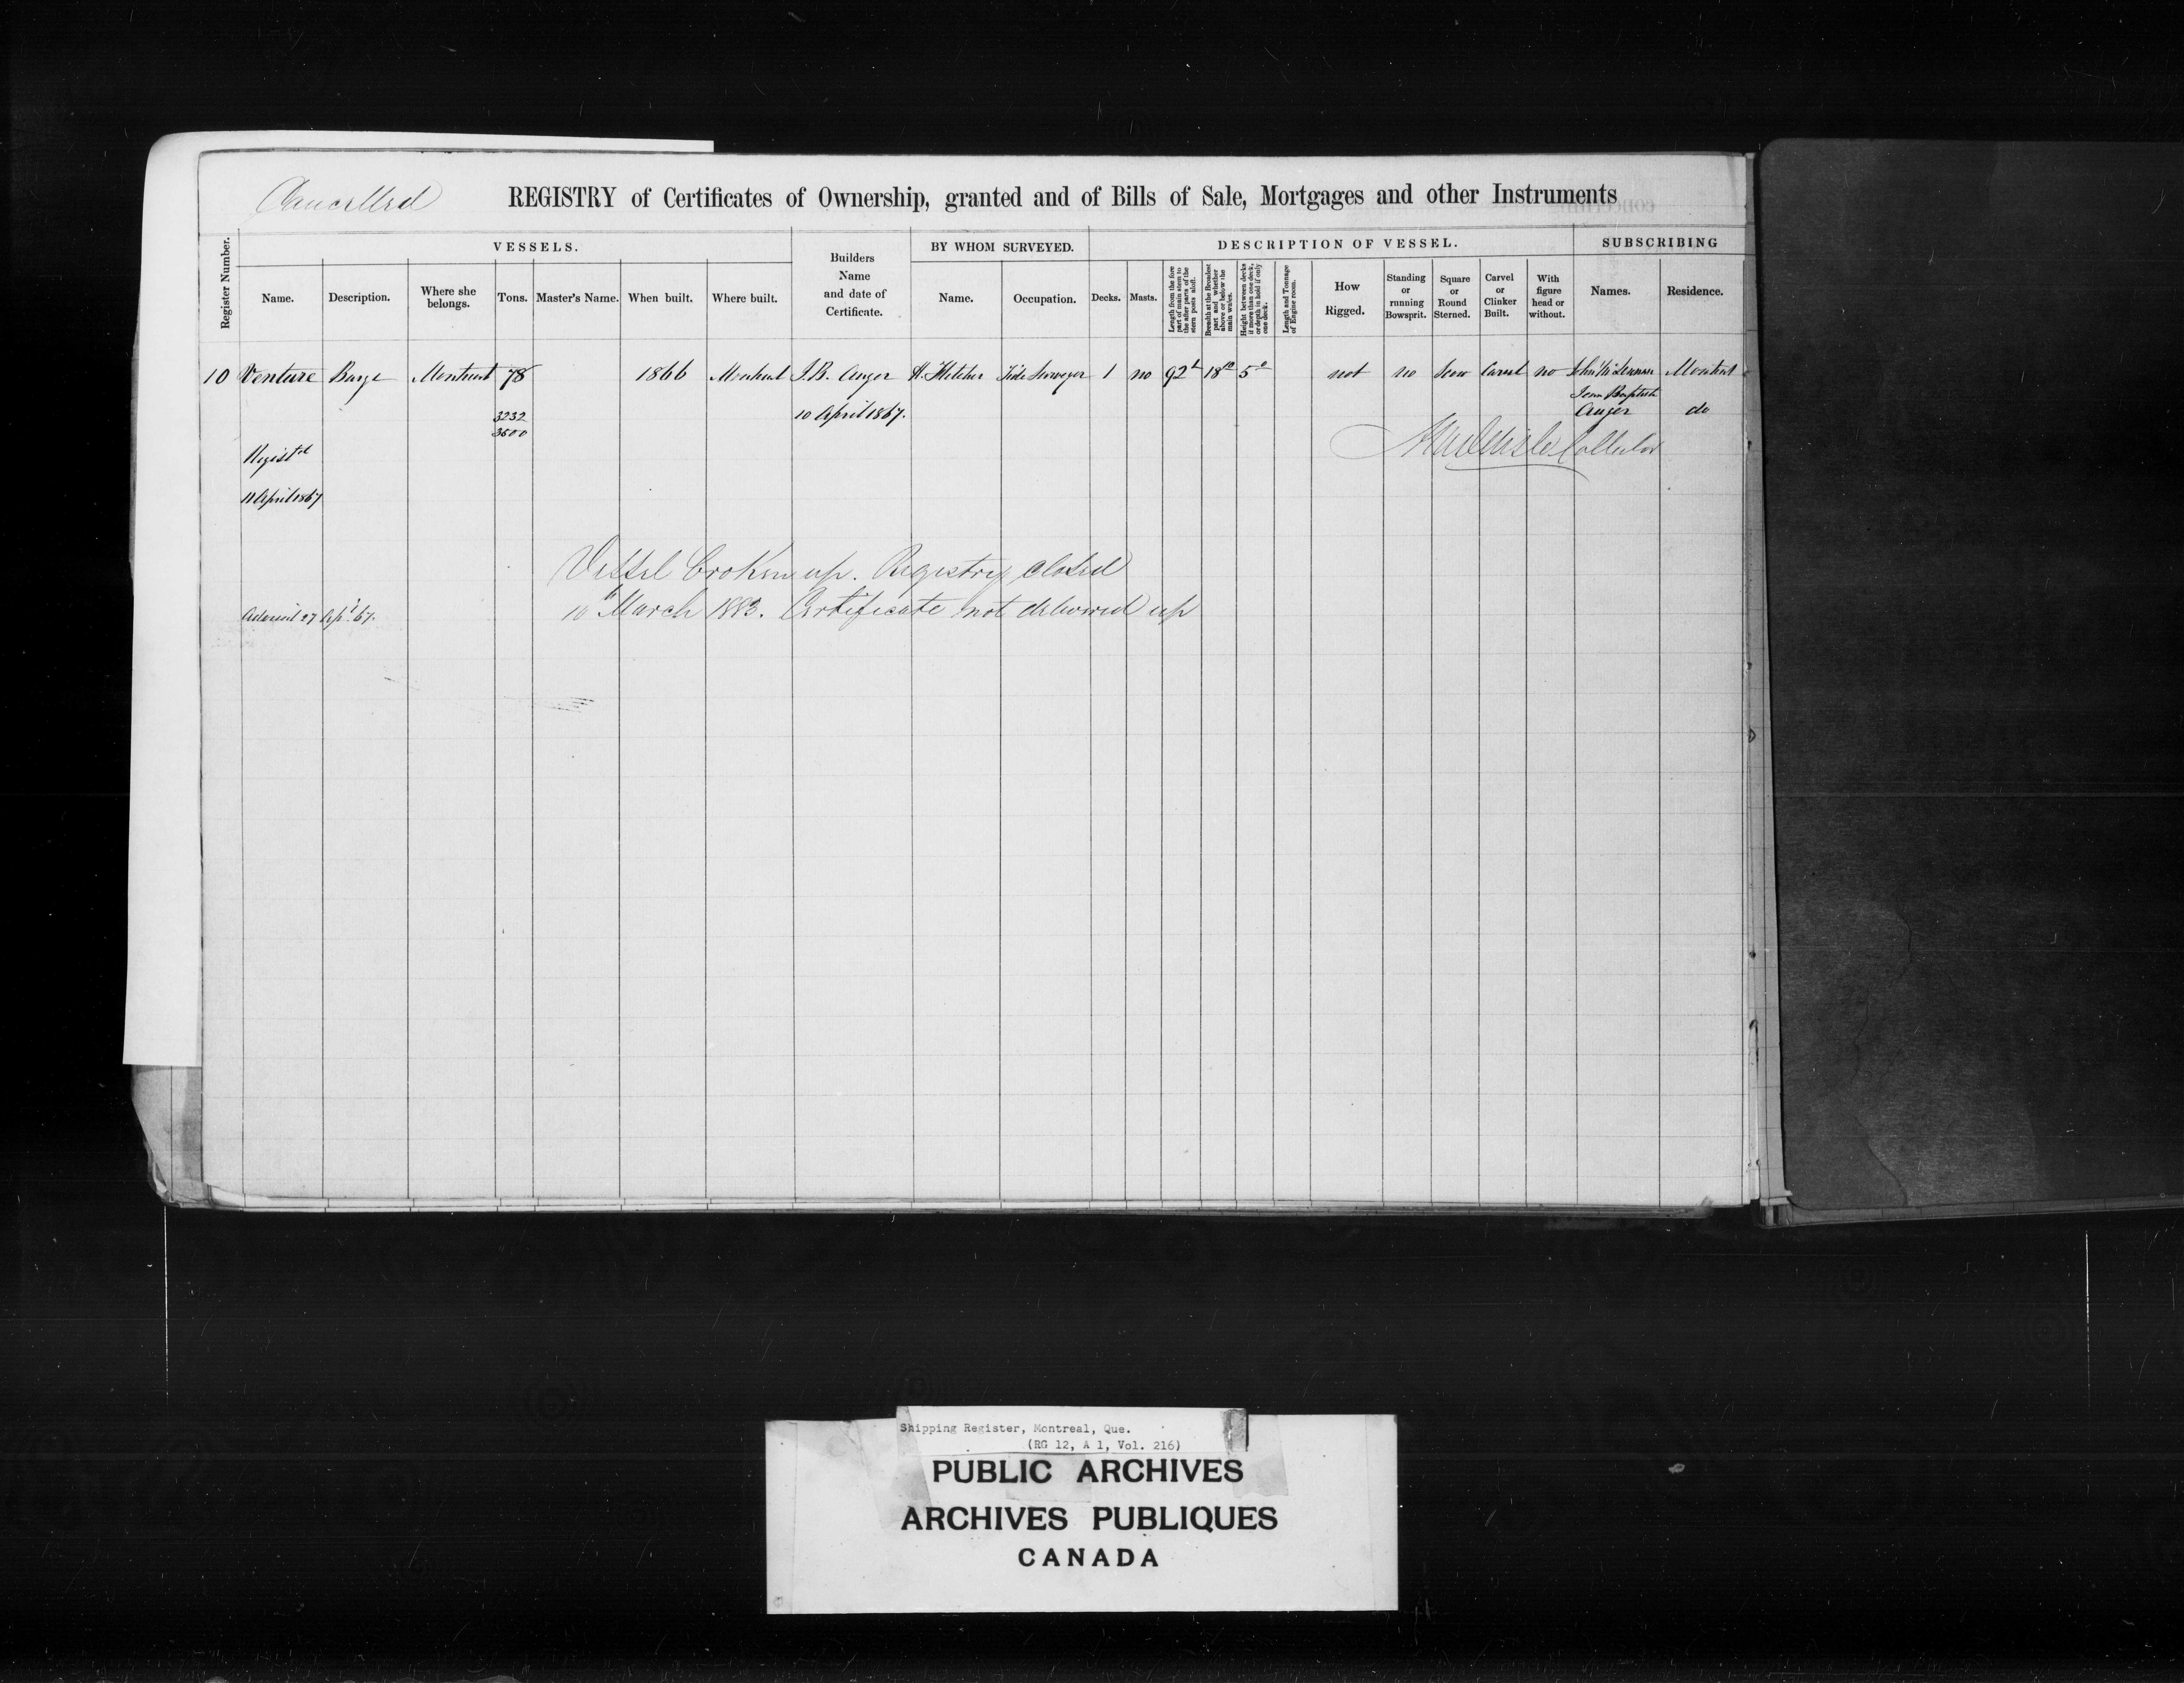 Cancelled
REGISTRY of Certificates of Ownership, granted and of Bills of Sale, Mortgages and other Instruments
Register Number.
VESSELS.
Name.
Description.
Where she belongs.
Tons.
Master's Name.
When built.
Where built.
Builders
Name
and date of
Certificate.
BY WHOM SURVEYED.
Name.
Occupation.
DESCRIPTION OF VESSEL.
Decks.
Masts.
Length from the fore
part of main stem to
the after parts of the
stern posts aloft.
Breadth at the Broadest
part and whether
above or below the
main wales.
Height between decks
if more than one deck,
or depth in hold if only
one deck.
Length and Tonnage
of Engine room.
How
Rigged.
Standing
or
running
Bowsprit.
Square
or
Round
Sterned.
Carvel
or
Clinker
Built.
With
figure
head or
without.
SUBSCRIBING
Names.
Residence.
10 Venture Barge Montreal 78 1866 Montreal J.B. Auger H. Fletcher Tide Surveyor 1 no 92 18 5 not no Scow Carvel no John Montreal
Jean Baptiste
3232 10 April 1867. Auger do
3500
Collector
Regist^d
11 April 1867
Vessel broken up. Registry closed
10th March 1883. Certificate not delivered up
27 Ap^l 67.
Shipping Register, Montreal, Que.
(RG 12, A 1, Vol. 216)
PUBLIC ARCHIVES
ARCHIVES PUBLIQUES
CANADA